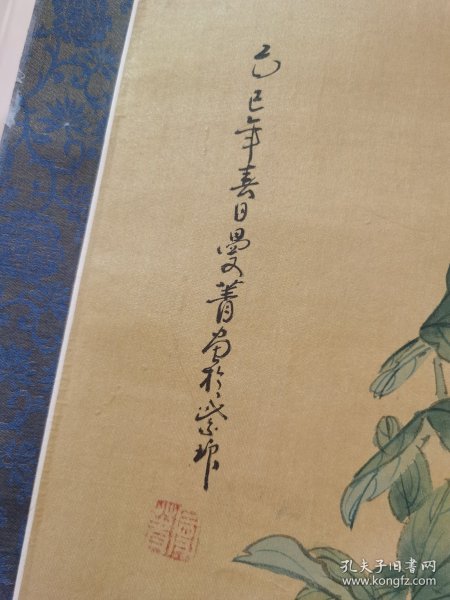 乙巳年春日曼菁画于紫琅
孔夫子旧书网
www.kongfz.com